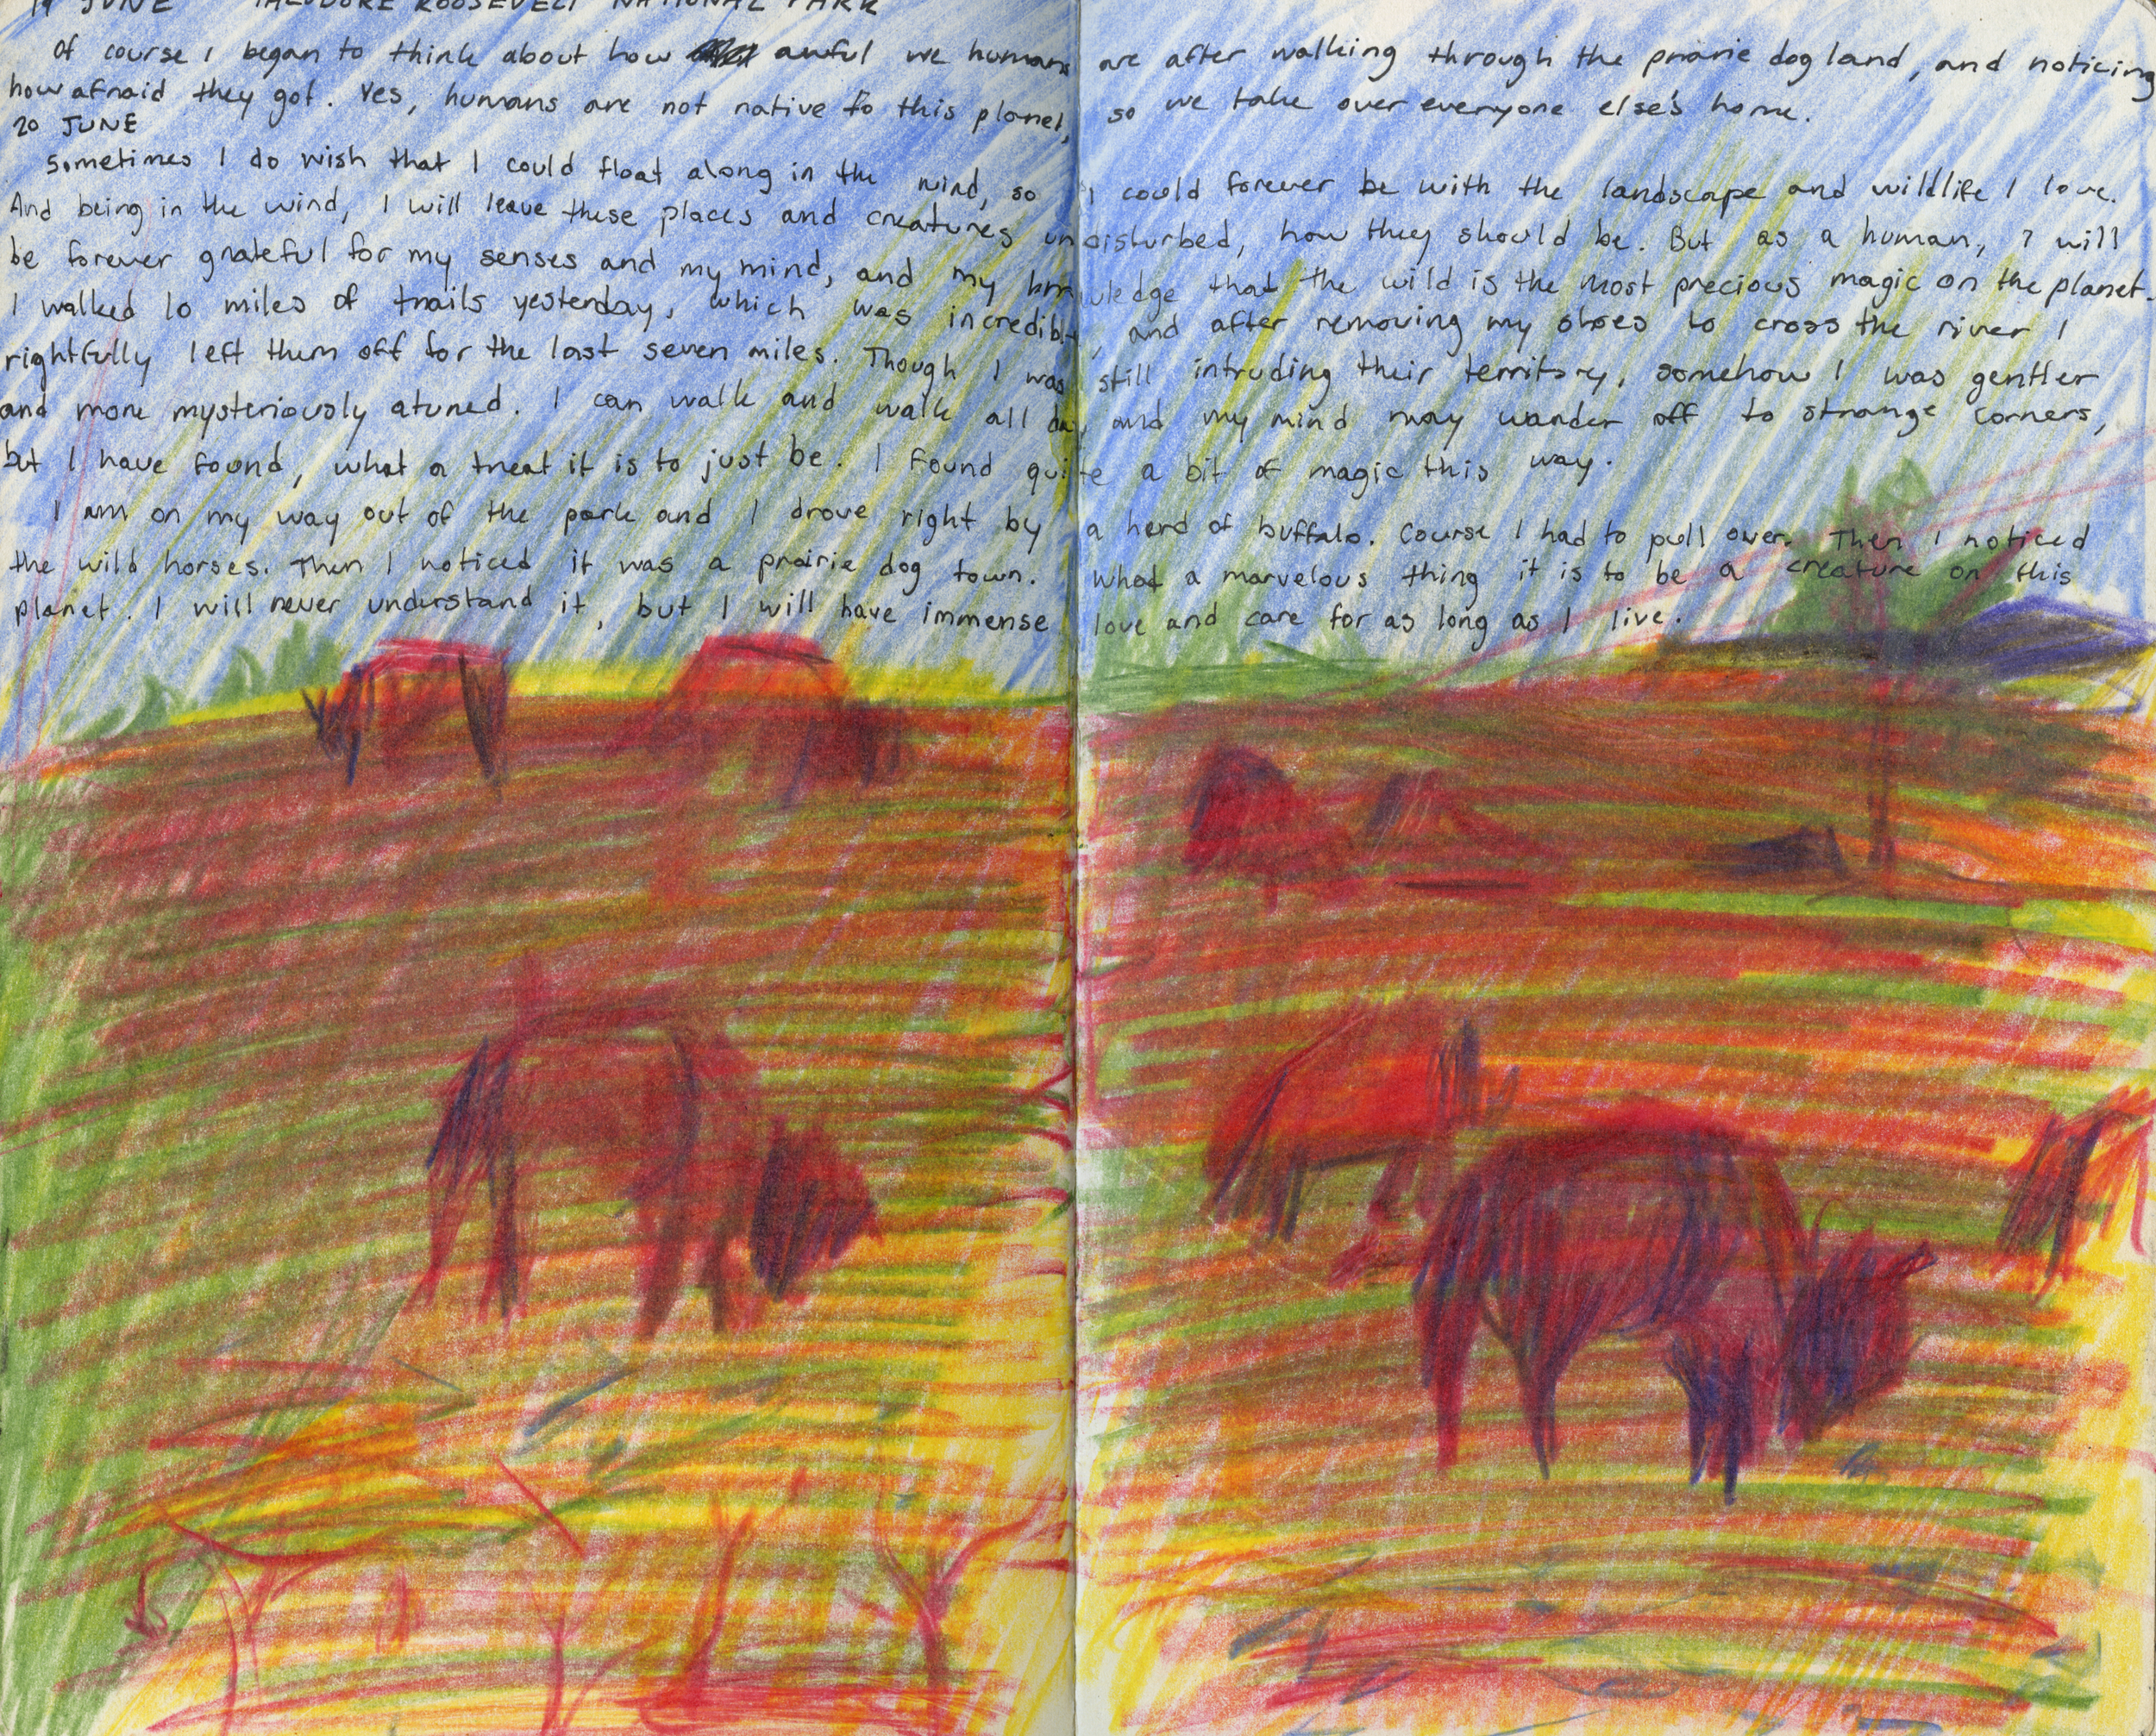 19 JUNE THEODORE ROOSEVELT NATIONAL PARK
Of course I began to think about how awful we humans are after walking through the prairie dog land, and noticing
how afraid they got. Yes, humans are not native to this planet, so we take over everyone else's home.
20 JUNE
Sometimes I do wish that I could float along in the wind, so I could forever be with the landscape and wildlife I love.
And being in the wind, I will leave these places and creatures undisturbed, how they should be. But as a human, I will
be forever grateful for my senses and my mind, and my knowledge that the wild is the most precious magic on the planet.
I walked 10 miles of trails yesterday, which was incredible, and after removing my shoes to cross the river I
rightfully left them off for the last seven miles. Though I was still intruding their territory, somehow I was gentler
and more mysteriously atuned. I can walk and walk all day, and my mind may wander off to strange corners,
but I have found, what a treat it is to just be. I found quite a bit of magic this way.
I am on my way out of the park and I drove right by a herd of buffalo. Course I had to pull over. Then I noticed
the wild horses. Then I noticed it was a prairie dog town. What a marvelous thing it is to be a creature on this
planet. I will never understand it, but I will have immense love and care for as long as I live.